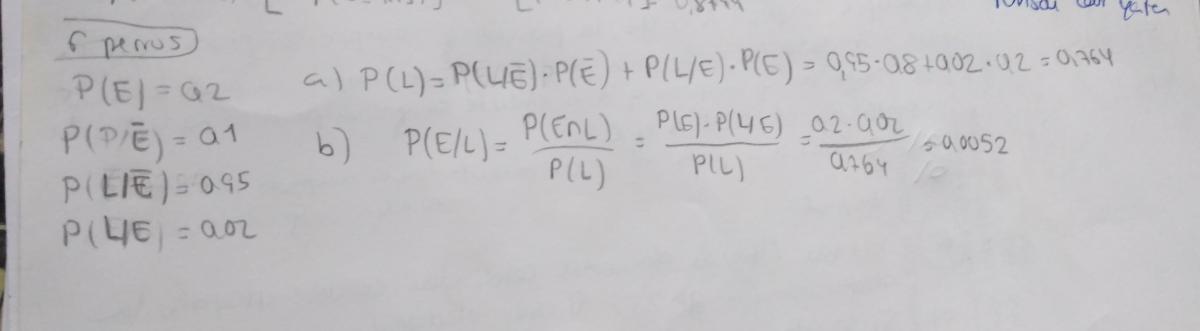 0,8
6 perros
P(E) = 0,2
P(D/Ē) = 0,1
P(L/Ē) = 0,95
P(L/E) = 0,02
a) P(L) = P(L/Ē)·P(Ē) + P(L/E)·P(E) = 0,95·0,8+0,02·0,2 = 0,764
b) P(E/L) = P(E∩L) / P(L) = P(E)·P(L/E) / P(L) = 0,2·0,02 / 0,764 = 0,0052